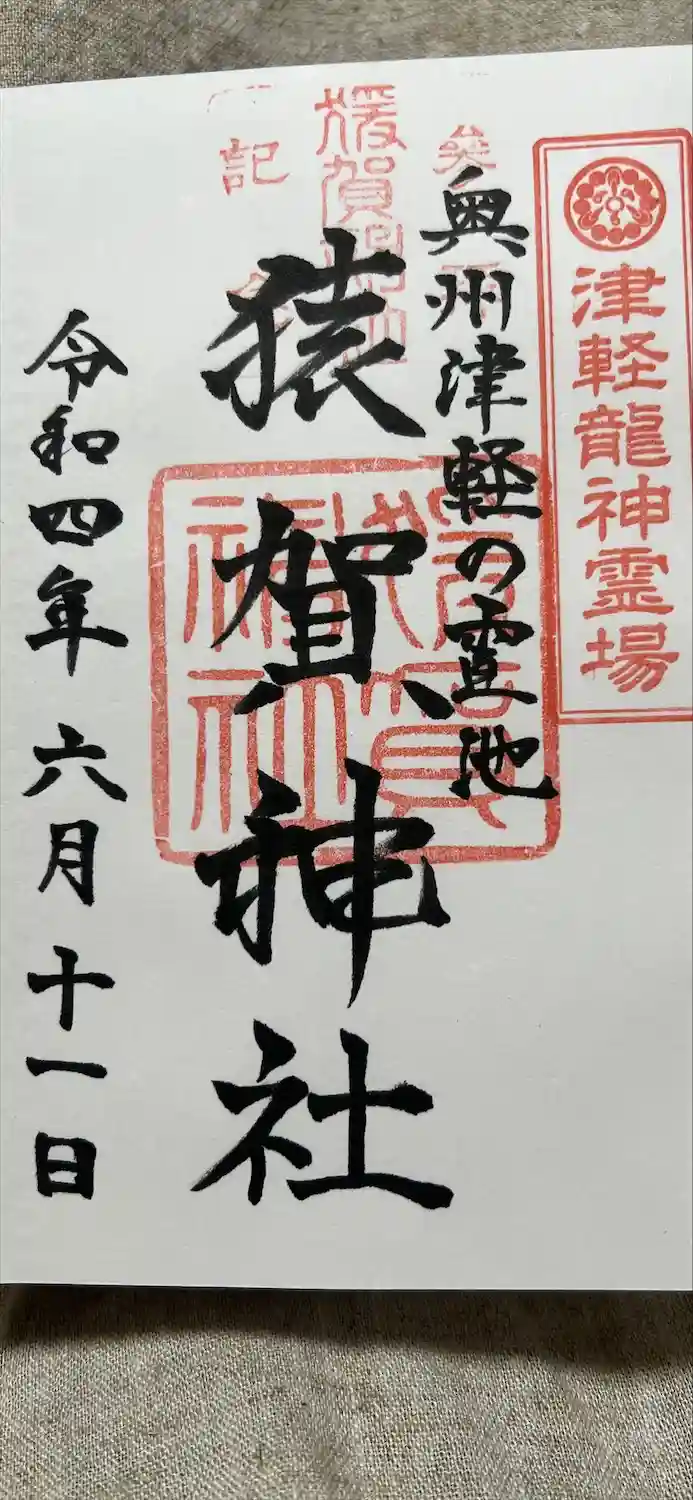 津軽龍神霊場
奥州津軽の霊池
猿賀神社
猿賀神社
令和四年六月十一日
記